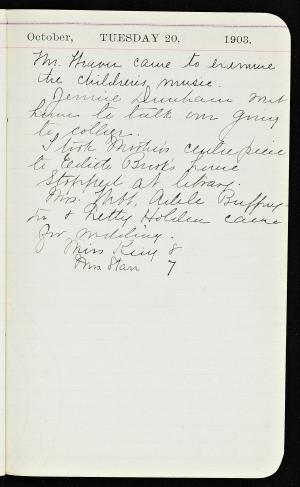 October, TUESDAY 20. 1903.
Mr. Weaver came to examine
the children's music.
Jennie Dunham met
here to talk over going
to college.
I took Mother's centre piece
to Edith Buck's house
Stopped at library.
Mrs. Adele
& Letty Holden came
for wedding.
Miss King 8
Mrs Starr 7